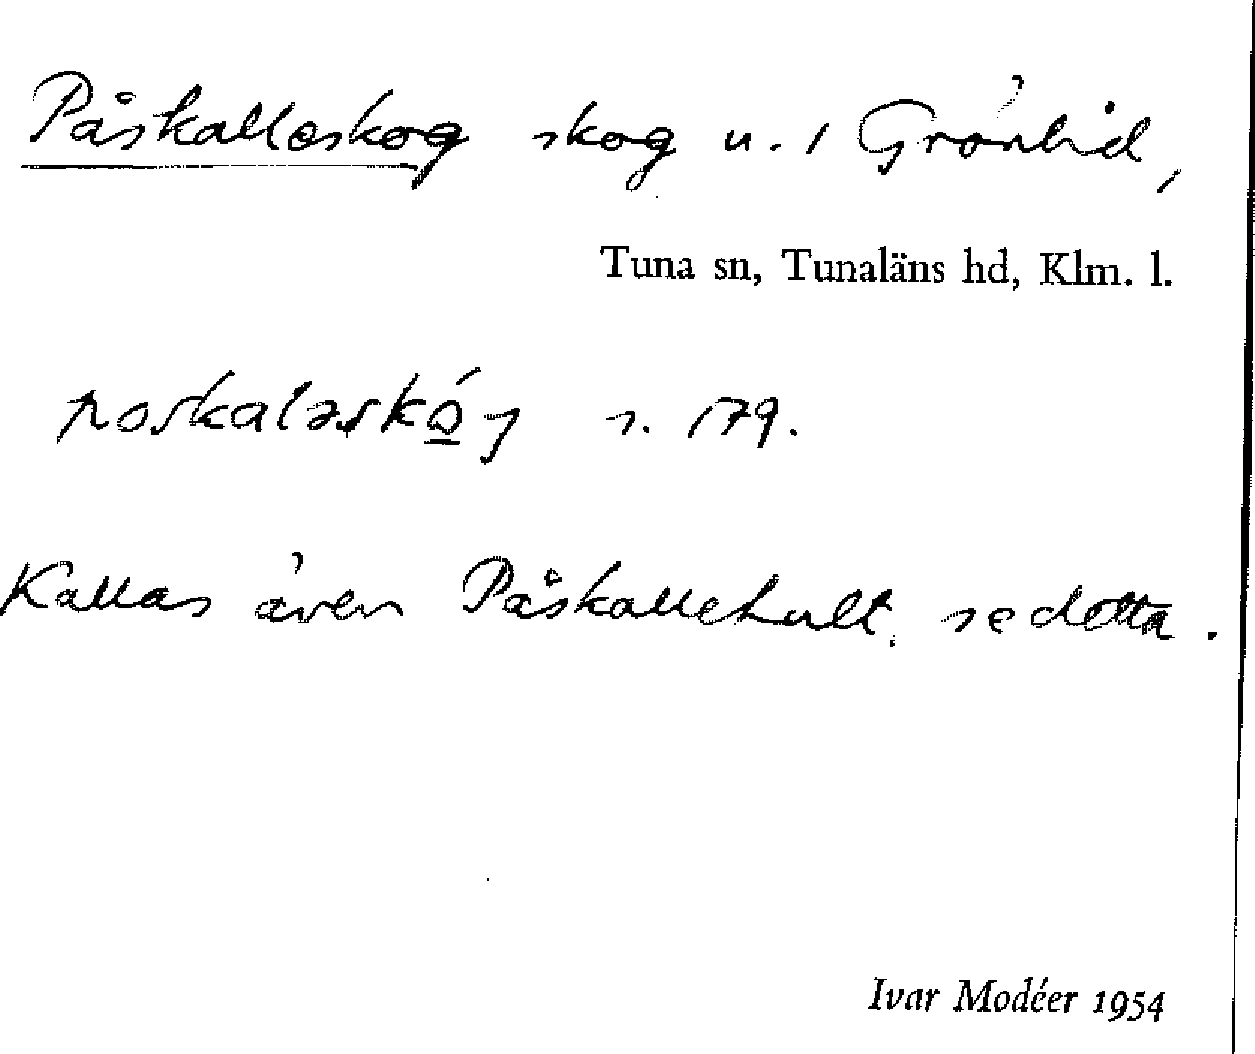 Påskalleskog skog u. 1 Grönlid,
Tuna sn, Tunaläns hd, Klm. l.
s. 179.
Kallas även Påskallehult, se detta.
Ivar Modéer 1954